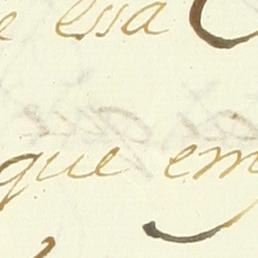 e essa
que em